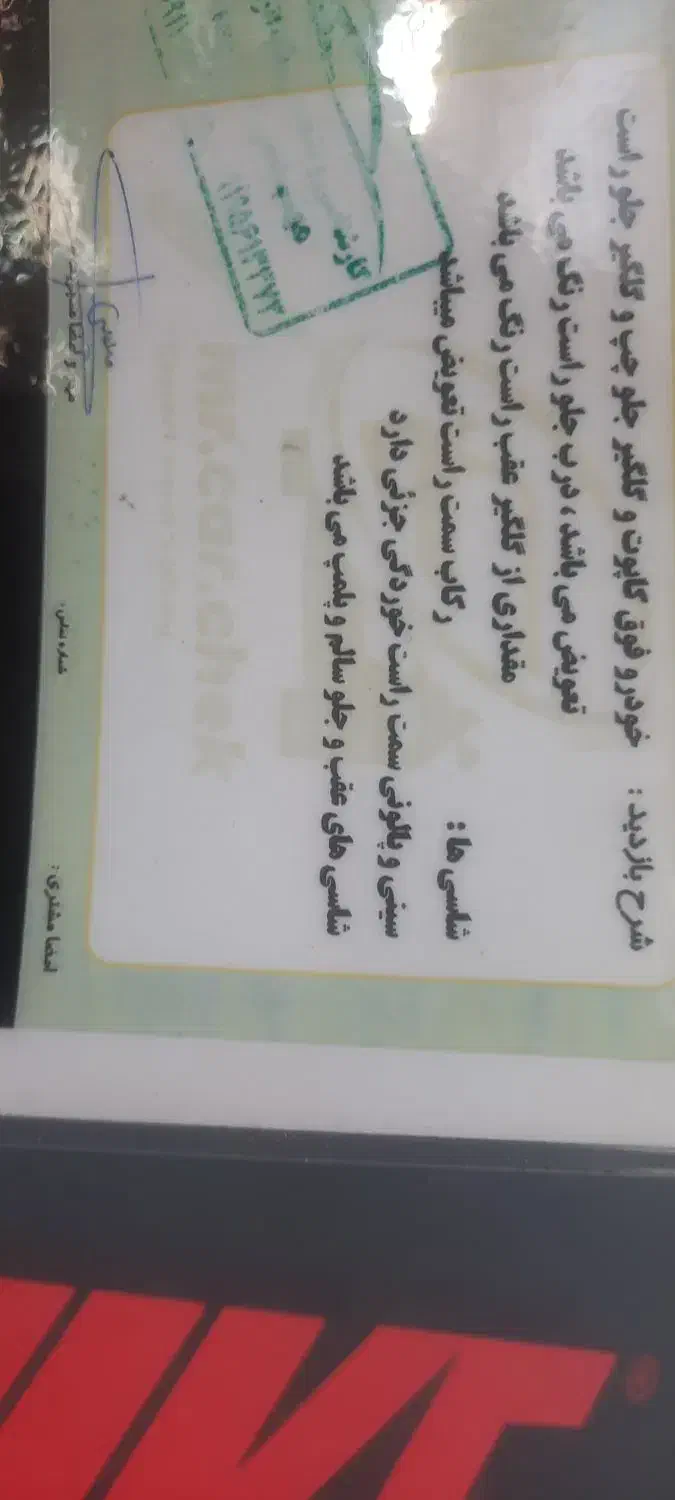 شرح بازدید : خودرو فوق کاپوت و گلگیر جلو چپ و گلگیر جلو راست
تعویض می باشد ، درب جلو راست رنگ می باشد
مقداری از گلگیر عقب راست رنگ می باشد
رکاب سمت راست تعویض میباشد
شاسی ها :
سینی و پالونی سمت راست خوردگی جزئی دارد
شاسی های عقب و جلو سالم و پلمپ می باشد
mr.car.chek
امضا مشتری :
شماره تماس :